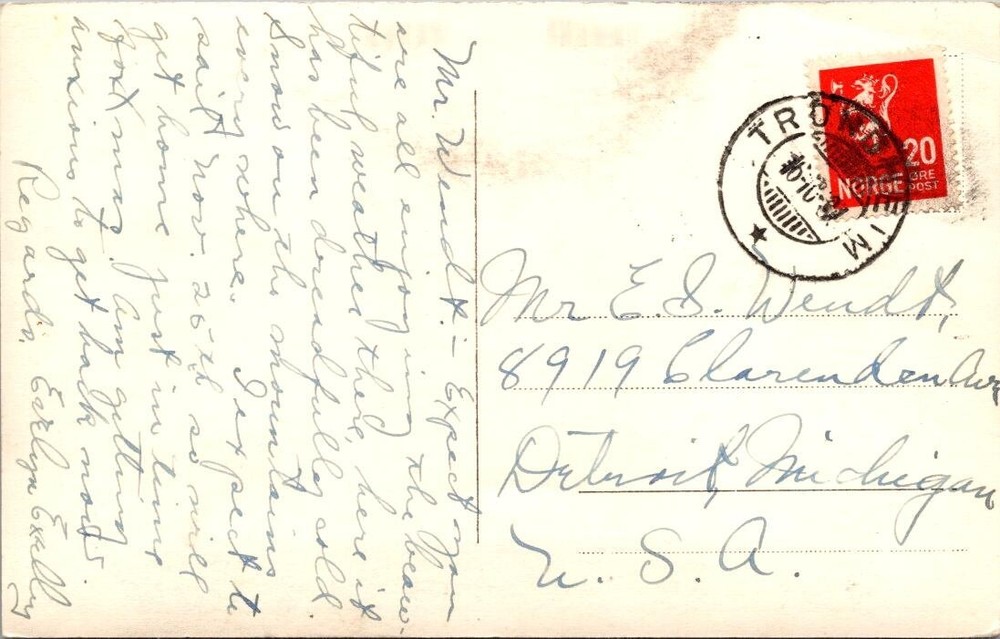 Mr. Wendt:- Expect you
are all enjoying the beau-
tiful weather there, here it
has been dreadfully cold.
Snow on the mountains
every where. I expect to
sail Nov. 25th so will
get home just in time
for Xmas. Am getting
anxious to get back now.
Regards, Evelyn
TRONDHEIM
20
NORGE ØRE
POST
Mr E. I. Wendt,
8919 Clarendon Ave
Detroit, Michigan
U. S. A.